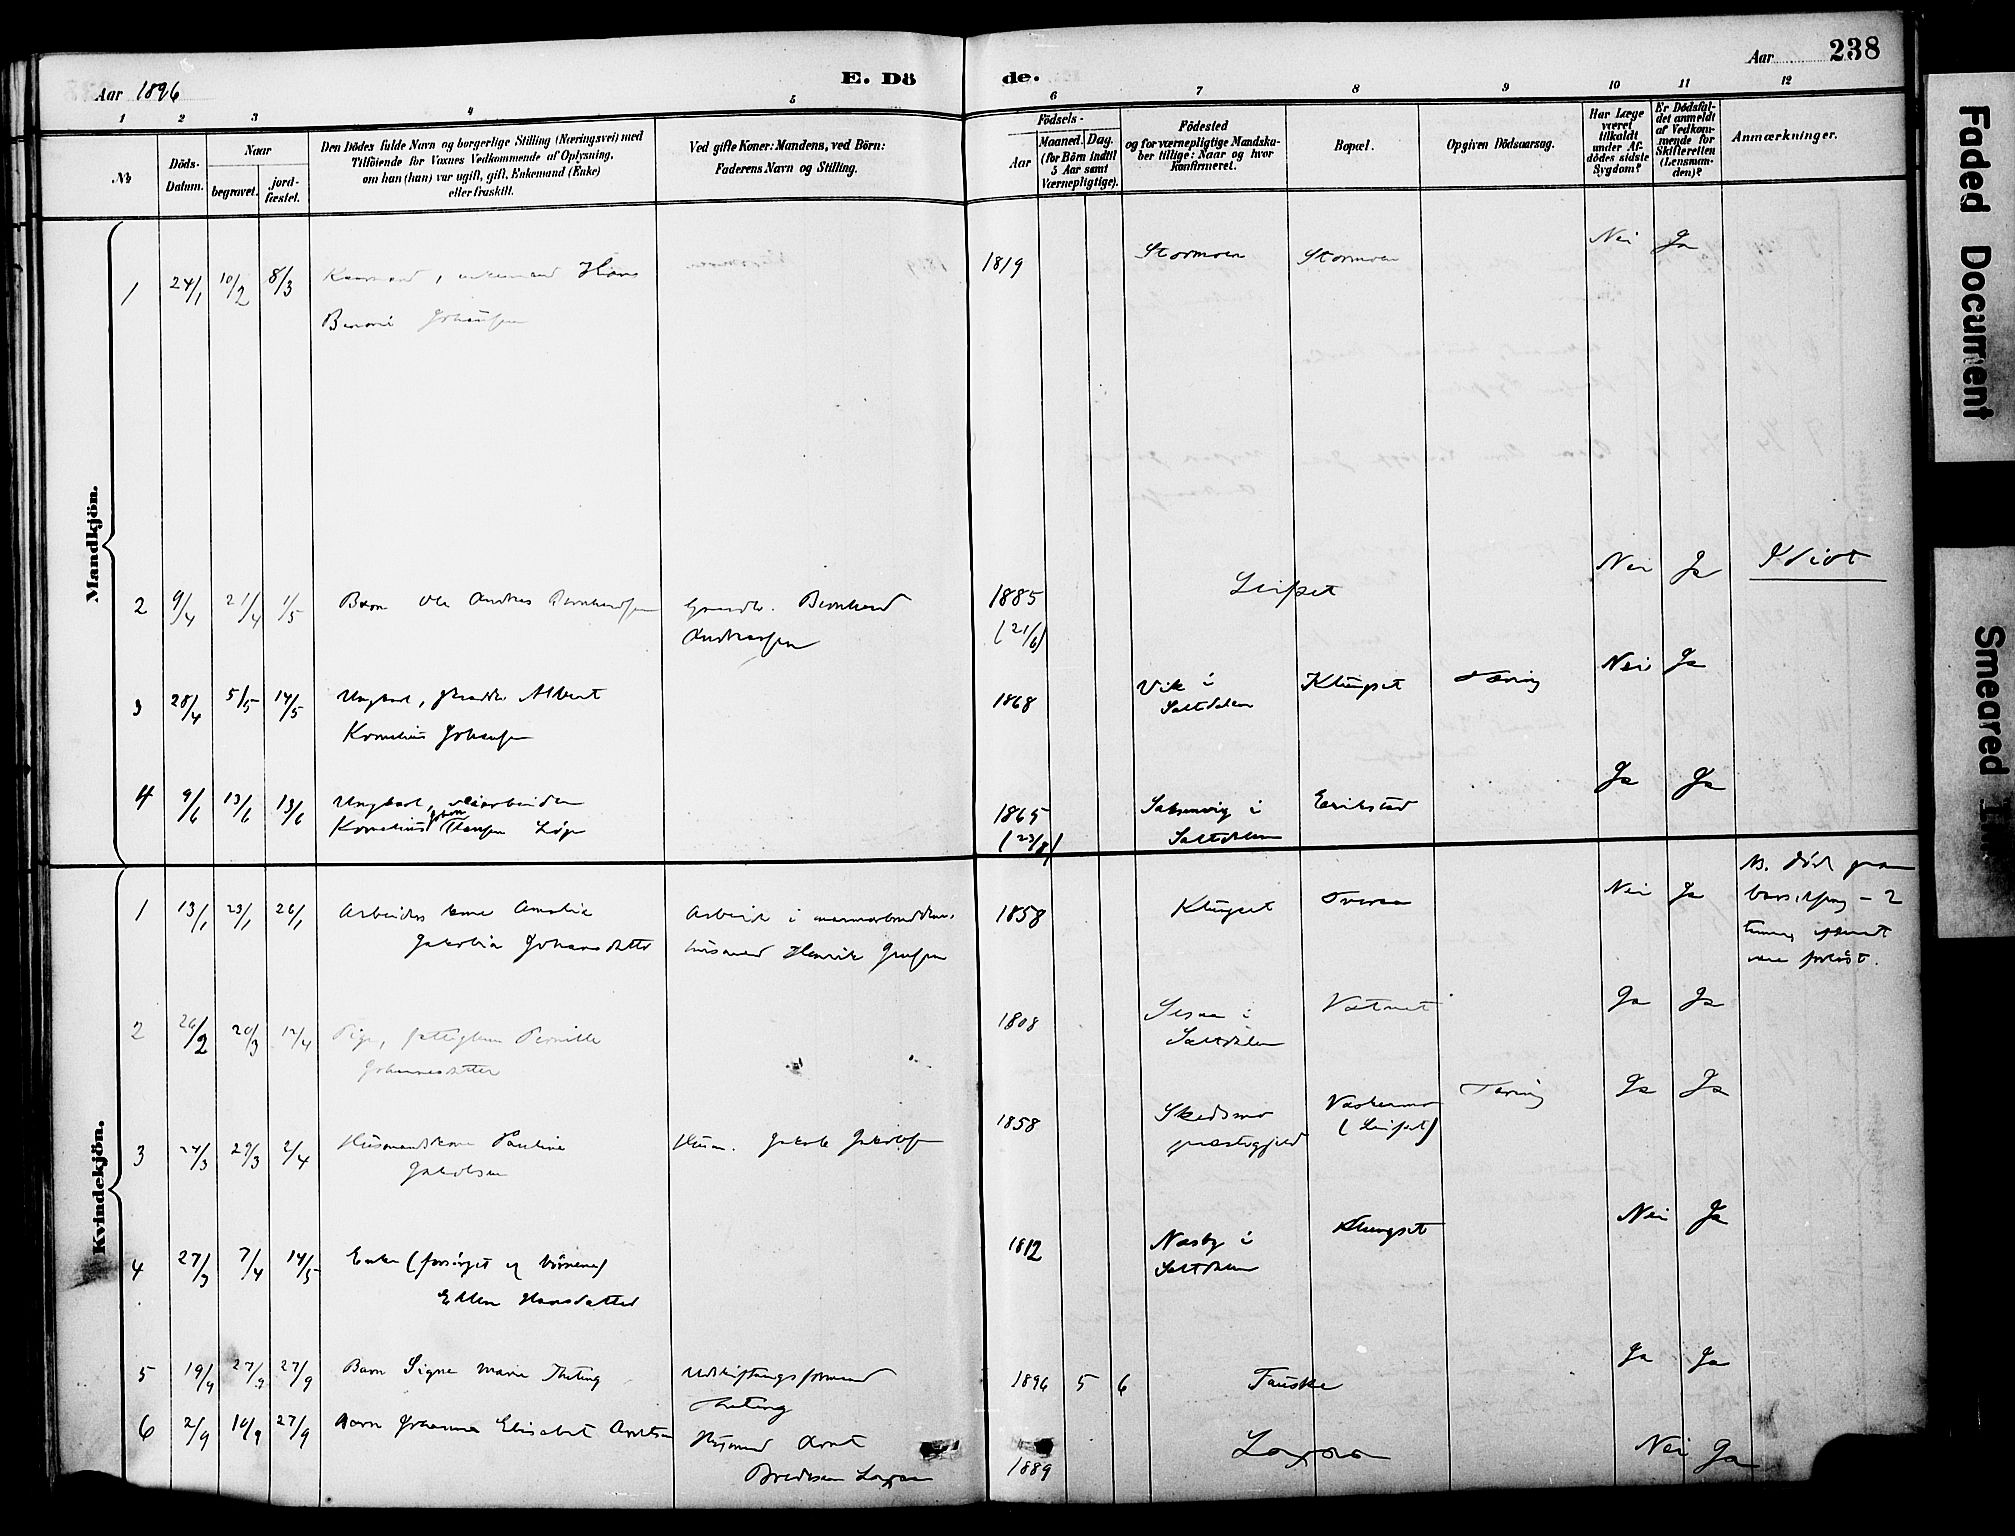 Aar 1896
E. Dö
de.
Aar
238
1 2 3 4 5 6 7 8 9 10 11 12
№
Döds-
Datum.
Naar
begravet.
jord-
fæstet.
Den Dödes fulde Navn og borgerlige Stilling (Næringsvei) med
Tilföiende for Voxnes Vedkommende af Oplysning,
om han (hun) var ugift, gift, Enkemand (Enke)
eller fraskilt.
Ved gifte Koner: Mandens, ved Börn:
Faderens Navn og Stilling.
Födsels-
Aar
Maaned. Dag.
(for Börn indtil
5 Aar samt
Værnepligtige).
Födested
og for værnepligtige Mandska-
ber tillige: Naar og hvor
Konfirmeret.
Bopæl.
Opgiven Dödsaarsag.
Har Læge
været
tilkaldt
under Af-
dödes sidste
Sygdom?
Er Dödsfal-
det anmeldt
af Vedkom-
mende for
Skifteretten
(Lensman-
den)?
Anmærkninger.
Mandkjön.
1 24/1 10/2 8/3 Kaarmand, enkemand Hans 1819 Stormoen Stormoen Nei Ja
Benoni Johansen
2 9/4 21/4 1/5 Barn Ole Andreas Bernhardsen Gaardbr. Bernhard 1885 Leifset Nei Ja Idiot
Andreassen (21/6)
3 28/4 5/5 14/5 Ungkarl, Albert 1868 Vik i Klungset Tæring Nei Ja
Kornelius Johansen Saltdalen
4 9/6 13/6 13/6 Ungkarl, veiarbeider 1865 Saksenvig i Erikstad Ja Ja
Kornelius Johan Hansen (23/8) Saltdalen
Kvindekjön.
1 13/1 23/1 26/1 Arbeiders kone Amalia Arbeider i marmorbruddene, 1858 Klungset Tveraa Nei Ja NB. döde paa
Jakobia Johansdatter husmand Henrik barselseng - 2
timer efterat
være forlöst.
2 26/2 20/3 12/4 Pige, fattiglem Pernille 1808 i Vatnet Ja Ja
Johannesdatter Saltdalen
3 24/3 29/3 2/4 Husmandskone Pauline Husm. Jakob Jakobsen 1858 Skedsmo Vaskermo Tæring Ja Ja
Jakobsen præstegjeld (Leifset)
4 27/3 7/4 14/5 Enke (forsörget af börnene) 1812 Næsby i Klungset Nei Ja
Ellen Hansdatter Saltdalen
5 19/9 27/9 27/9 Barn Signe Marie Theting Udskiftningsformand 1896 5 6 Fauske Ja Ja
Theting
6 2/9 14/9 27/9 Barn Johanna Elisabet Arntsen Husmand Arnt 1889 Nei Ja
Bredesen
Faded Document
Smeared Ink